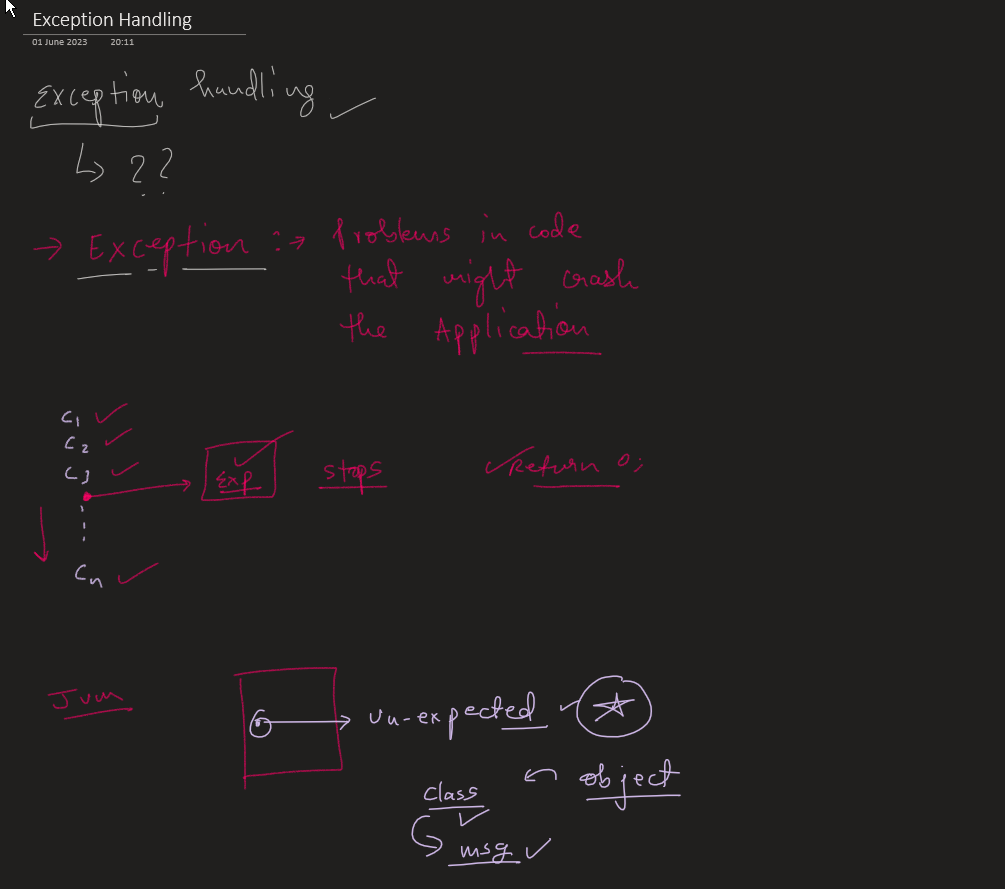 Exception Handling
01 June 2023 20:11
Exception handling
??
Exception :
Problems in code
that might crash
the Application
C1
C2
C3
Exp stops Return 0;
Cn
Jvm
un-expected
object
class
msg